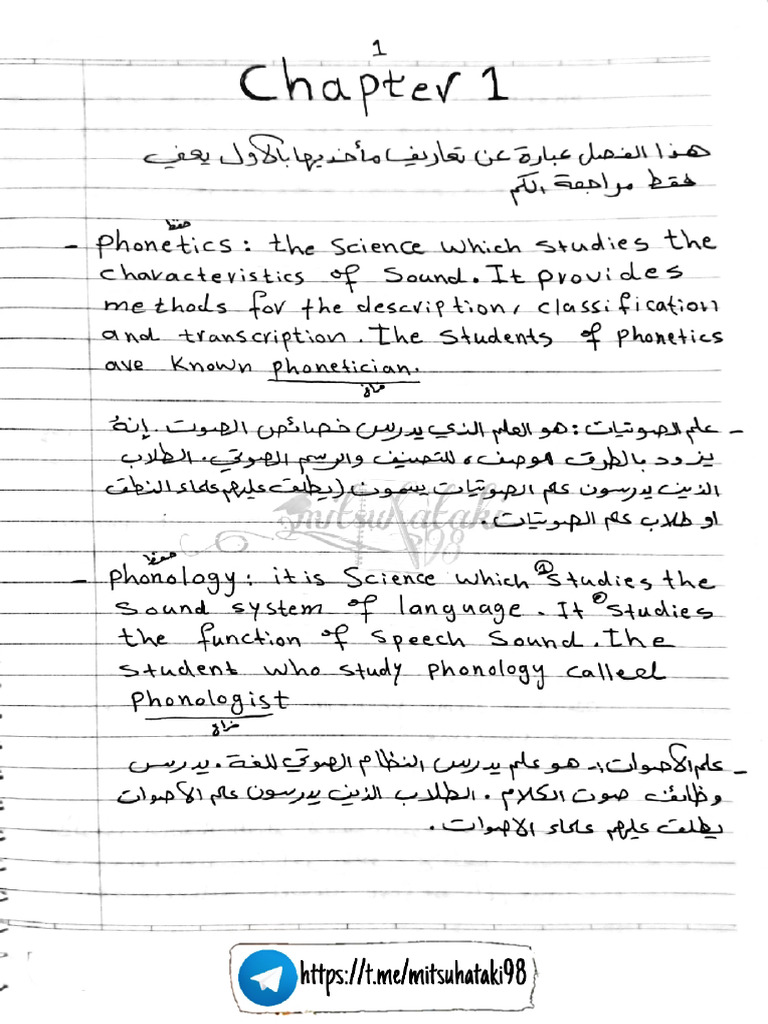 1
Chapter 1
هذا الفصل عبارة عن تعاريف مأخذيها بالأول يعني
فقط مراجعة الكم
حفظ
- Phonetics : the Science which studies the
characteristics of Sound. It provides
methods for the description, classification
and transcription. The Students of Phonetics
are known phonetician.
فراغ
- علم الصوتيات : هو العلم الذي يدرس خصائص الصوت. إنهُ
يزود بالطرق للوصف، للتصنيف والرسم الصوتي. الطلاب
الذين يدرسون علم الصوتيات يسمون (يطلق عليهم علماء النطق
او طلاب علم الصوتيات.
mitsuhataki
98
حفظ
- Phonology : it is Science which ① studies the
Sound system of language. It ② studies
the function of Speech Sound. The
student who study phonology called
Phonologist
فراغ
- علم الأصوات :- هو علم يدرس النظام الصوتي للغة. يدرس
وظائف صوت الكلام. الطلاب الذين يدرسون علم الأصوات
يطلق عليهم علماء الاصوات.
https://t.me/mitsuhataki98